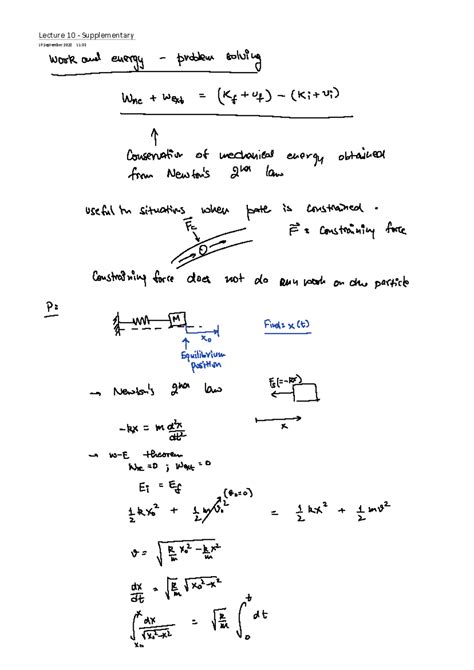 Lecture 10 - Supplementary
19 September 2022 11:03
Work and energy - problem solving
Wnc + Wext = (Kf + Uf) - (Ki + Ui)
↑
Conservation of mechanical energy obtained
from Newton's 2nd law
useful in situations when path is constrained.
F⃗c
F⃗ = Constraining force
Constraining force does not do any work on the particle
P:
M
x0
Find: x(t)
↑
Equilibrium
position
→ Newton's 2nd law
x
-kx = m d²x/dt²
→ W-E theorem
Wnc = 0 ; Wext = 0
Ei = Ef
½ k x0² + ½ m v0² (v0=0) = ½ kx² + ½ mv²
v = √(k/m x0² - k/m x²)
dx/dt = √(k/m) √(x0² - x²)
∫_{x0}^{x} dx/√(x0² - x²) = √(k/m) ∫_0^t dt